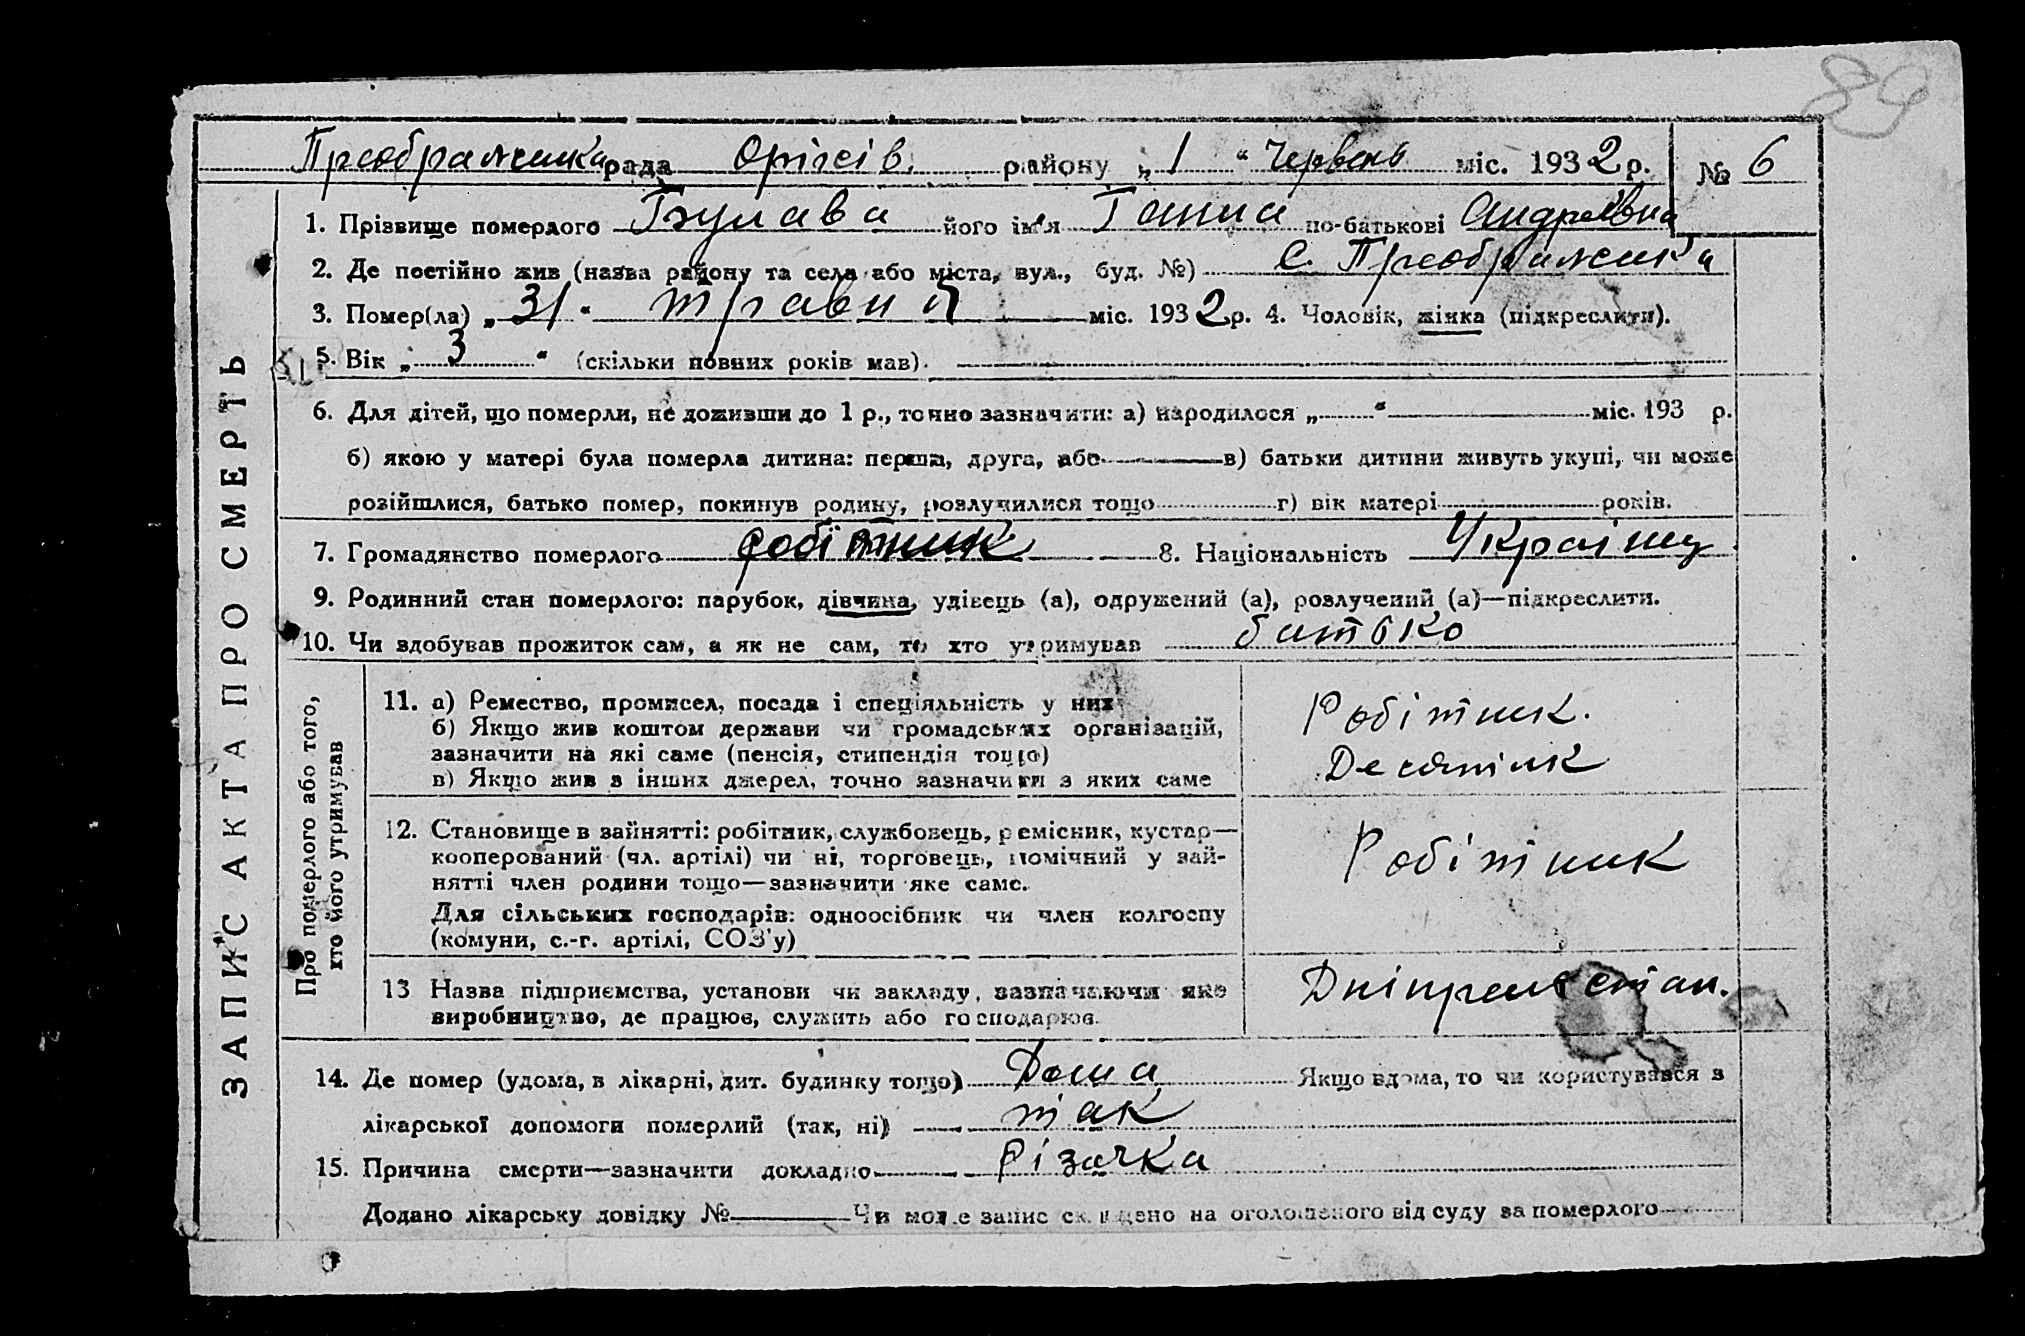 89
Преображенка рада Оріхів. району „ 1 “ Червень міс. 1932 р. № 6
1. Прізвище померлого Булава його ім'я Ганна по-батькові Андреївна
2. Де постійно жив (назва району та села або міста, вул., буд. №) С. Преображенка
3. Помер(ла) „ 31 “ травня міс. 1932 р. 4. Чоловік, жінка (підкреслити).
5. Вік „ 3 “ (скільки повних років мав).
6. Для дітей, що померли, не доживши до 1 р., точно зазначити: а) народилося „ “ міс. 193 р.
б) якою у матері була померла дитина: перша, друга, або в) батьки дитини живуть укупі, чи може
розійшлися, батько помер, покинув родину, розлучилися тощо г) вік матері років.
7. Громадянство померлого робітник 8. Національність Українц
9. Родинний стан померлого: парубок, дівчина, удівець (а), одружений (а), розлучений (а)—підкреслити.
10. Чи здобував прожиток сам, а як не сам, то хто утримував батько
ЗАПИС АКТА ПРО СМЕРТЬ
Про померлого або того,
хто його утримував
11. а) Ремество, промисел, посада і спеціяльність у них
б) Якщо жив коштом держави чи громадських організацій,
зазначити на які саме (пенсія, стипендія тощо)
в) Якщо жив з інших джерел, точно зазначити з яких саме
Робітник.
Десятник
12. Становище в зайнятті: робітник, службовець, ремісник, кустар—
кооперований (чл. артілі) чи ні, торговець, помічний у зай-
нятті член родини тощо—зазначити яке саме.
Для сільських господарів: одноосібник чи член колгоспу
(комуни, с.-г. артілі, СОЗ'у)
Робітник
13 Назва підприємства, установи чи закладу, зазначаючи яке
виробництво, де працює, служить або господарює.
14. Де помер (удома, в лікарні, дит. будинку тощо) Дома Якщо вдома, то чи користувався з
лікарської допомоги померлий (так, ні) так
15. Причина смерти—зазначити докладно Різачка
Додано лікарську довідку № Чи може запис складено на оголошеного від суду за померлого